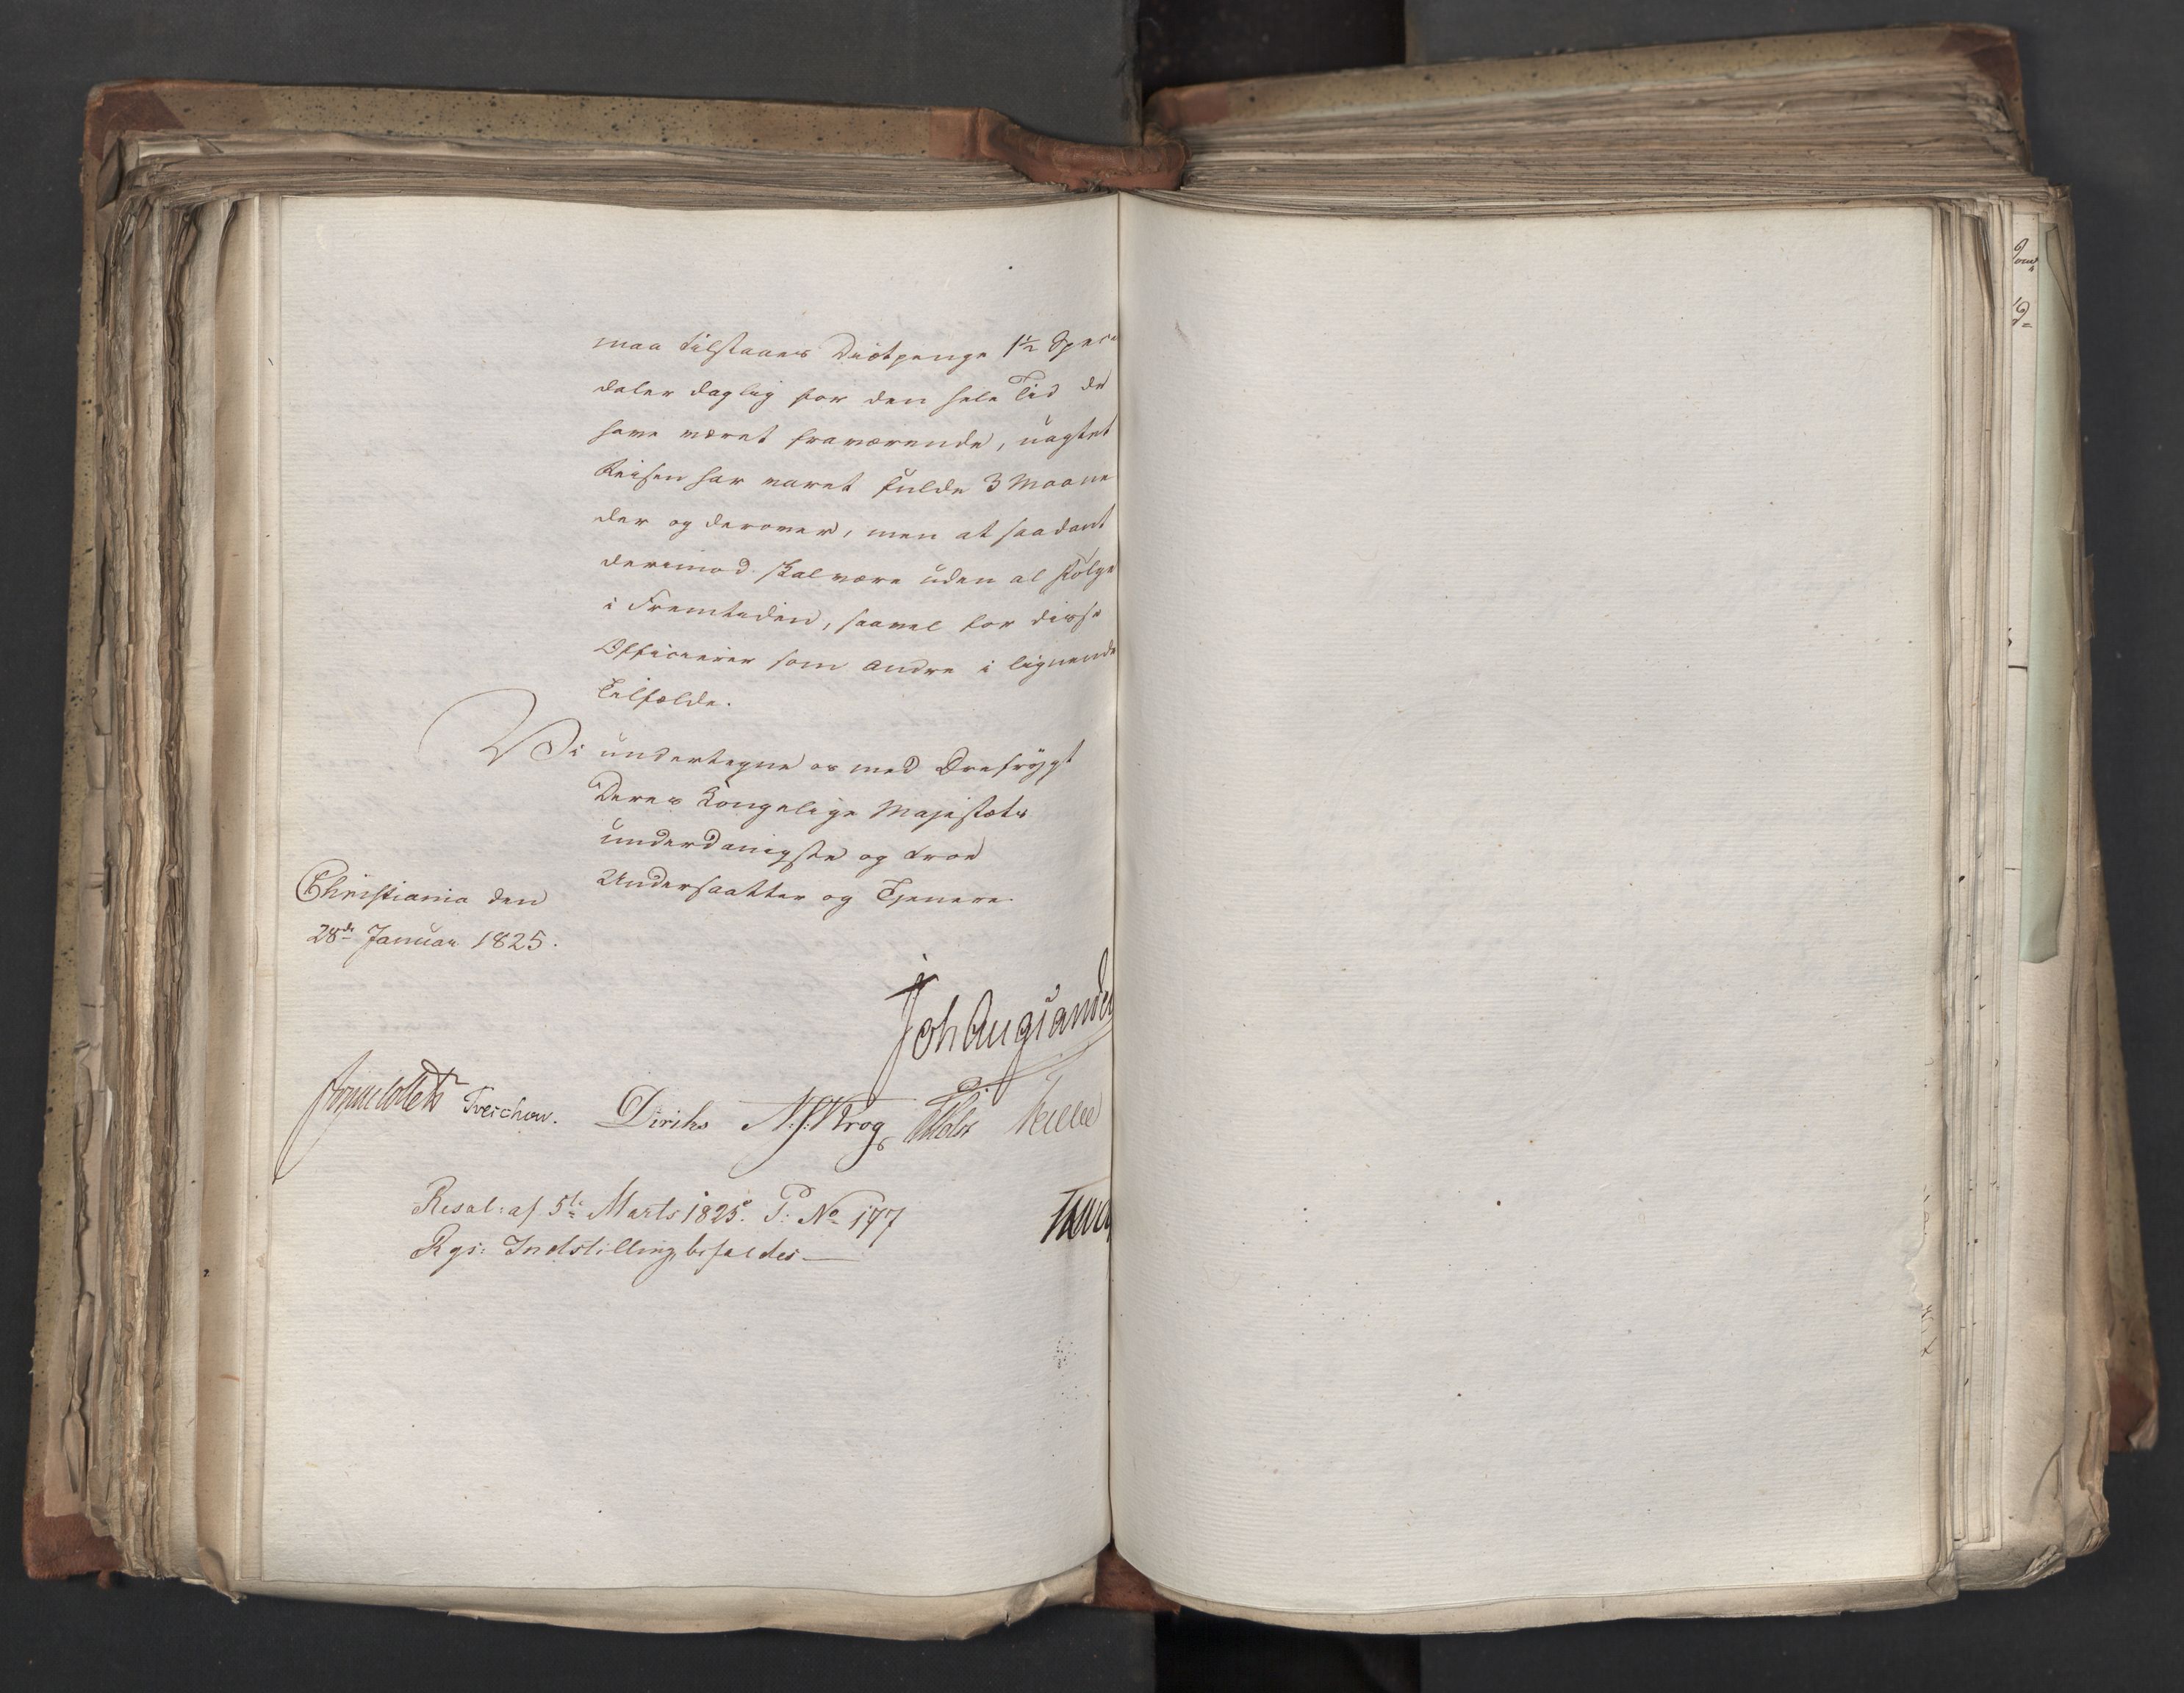 maa tilstaaes Diætpenge 1½ Specie
daler daglig for den hele Tid de
have været fraværende, uagtet
Reisen har varet fulde 3 Maane
der og derover, men at saadant
derimod skal være uden al Følge
i Fremtiden, saavel for disse
Officierer som andre i lignende
Tilfælde.
Vi undertegne os med Ærefrygt
Deres Kongelige Majestæts
underdanigste og troe
Undersaatter og Tjenere.
Christiania den
28de Januar 1825.
Joh Aug Sandels
Jonas Collett Treschow. Diriks N. J. Krog Holst
Resol: af 5te Marts 1825. P: No 197
Rgs: Indstilling bifaldes